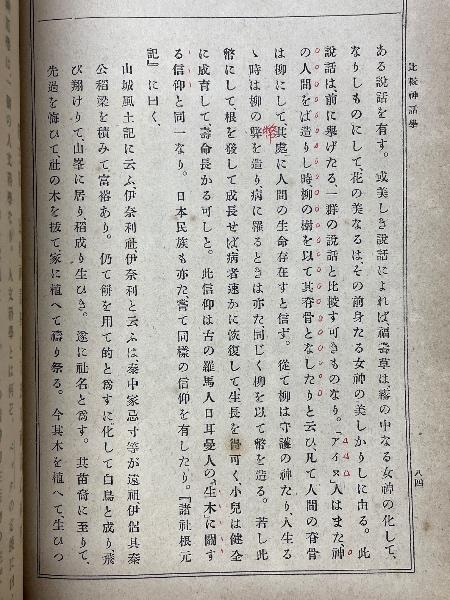 比較神話學
八四
ある說話を有す。或美しき說話によれば、福壽草は、霧の中なる女神の化して、
なりしものにして、花の美なるは、その前身たる女神の美しかりしに由る。此
說話は、前に擧げたる、一群の說話と比較す可きものなり。「アイヌ」人はまた、神
の人間をば造りし時、柳の樹を以て其脊骨となしたりと云ひ、凡て人間の脊骨
は柳にして、其處に人間の生命存在すと信ず。從て柳は守護の神たり、人生る
ゝ時は柳の弊を造り、病に罹るときは亦た同じく柳を以て幣を造る。若し此
幣
幣にして、根を發して成長せば病者速かに恢復して、生長を得可く、小兒は健全
に成育して壽命長かる可しと。此信仰は古の羅馬人日耳曼人の「生木」に關す
る信仰と同一なり。日本民族も亦た嘗て同樣の信仰を有したり。『諸社根元
記』に曰く、
山城風土記に云ふ、伊奈利社、伊奈利と云ふは、秦中家忌寸等が遠祖伊侶具秦
公、稻梁を積みて富裕あり。仍て餅を用て的と爲すに、化して白鳥と成り、飛
び翔けりて、山峯に居り、稻成り生ひき。遂に社名と爲す。其苗裔に至りて、
先過を悔ひて社の木を拔て、家に植へて禱り祭る。今其木を植へて、生ひつ